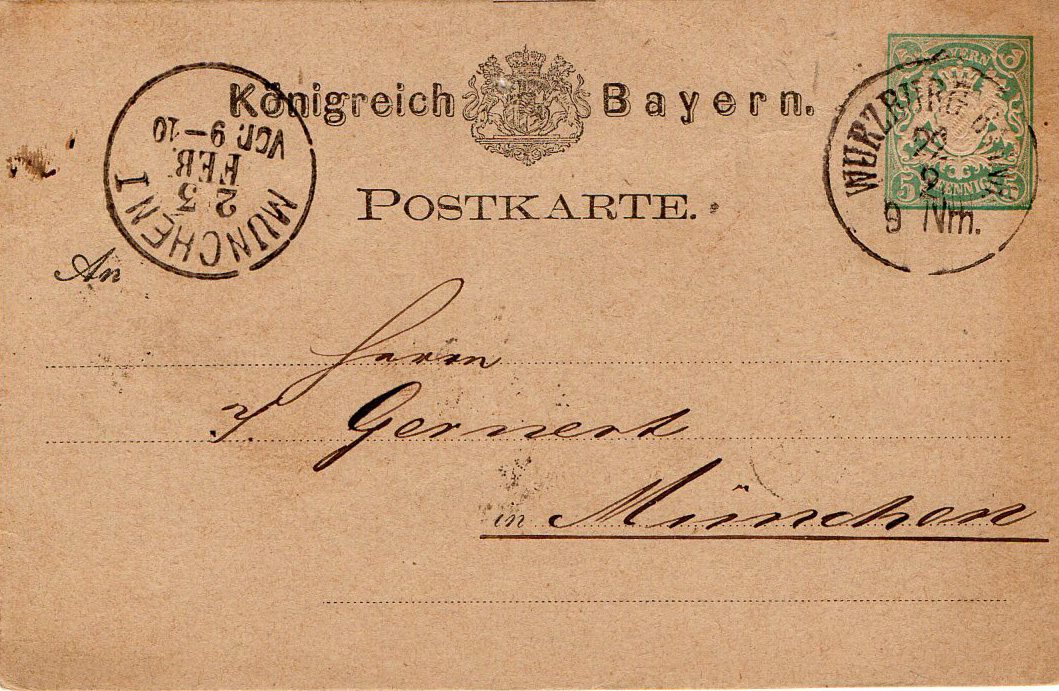 Königreich Bayern.
POSTKARTE.
MÜNCHEN I
23
FEB.
VOR. 9-10
BAYERN
5 PFENNIG 5
WÜRZBURG
2
9 Nm.
An
Herrn
Gernert
in München